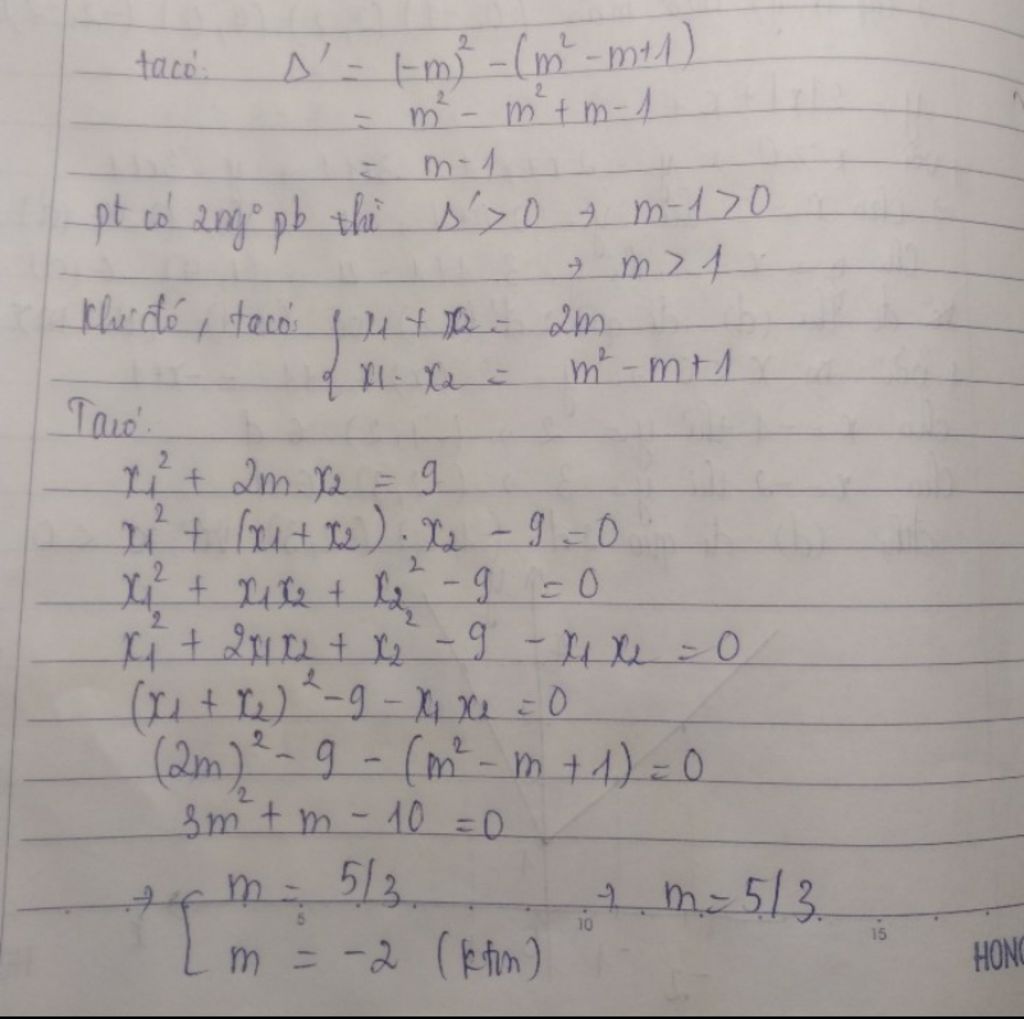 ta có: Δ' = (-m)² - (m² - m+1)
= m² - m² + m - 1
= m - 1
pt có 2 ng° pb thì Δ' > 0 → m-1 > 0
→ m > 1
Khi đó, ta có: { x₁ + x₂ = 2m
x₁ . x₂ = m² - m + 1
Ta có:
x₁² + 2m . x₂ = 9
x₁² + (x₁ + x₂) . x₂ - 9 = 0
x₁² + x₁x₂ + x₂² - 9 = 0
x₁² + 2x₁x₂ + x₂² - 9 - x₁x₂ = 0
(x₁ + x₂)² - 9 - x₁x₂ = 0
(2m)² - 9 - (m² - m + 1) = 0
3m² + m - 10 = 0
→ [ m = 5/3 → m = 5/3
m = -2 (ktm)
5 10 15
HONG